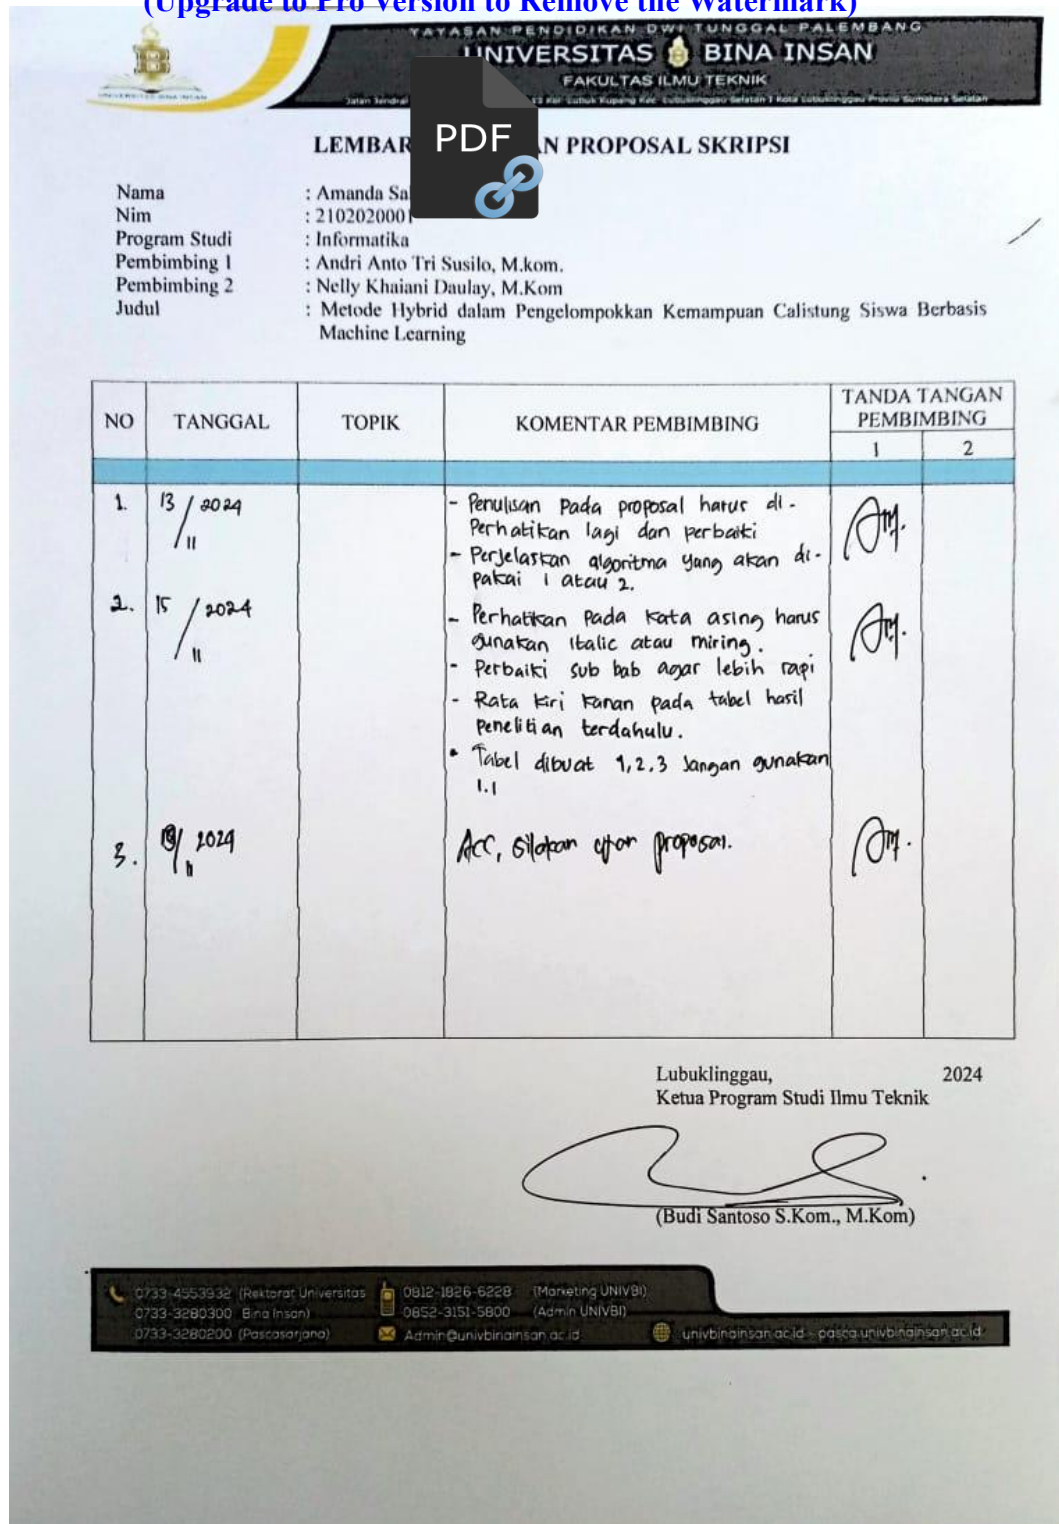 (Upgrade to Pro Version to Remove the Watermark)
YAYASAN PENDIDIKAN DWI TUNGGAL PALEMBANG
UNIVERSITAS BINA INSAN
FAKULTAS ILMU TEKNIK
Jalan Jendral 13 Kel. Lubuk Kupang Kec. Lubuklinggau Selatan I Kota Lubuklinggau Provisi Sumatera Selatan
UNIVERSITAS BINA INSAN
PDF
LEMBAR N PROPOSAL SKRIPSI
Nama : Amanda Sa
Nim : 2102020001
Program Studi : Informatika
Pembimbing 1 : Andri Anto Tri Susilo, M.kom.
Pembimbing 2 : Nelly Khaiani Daulay, M.Kom
Judul : Metode Hybrid dalam Pengelompokkan Kemampuan Calistung Siswa Berbasis
Machine Learning
NO TANGGAL TOPIK KOMENTAR PEMBIMBING TANDA TANGAN PEMBIMBING
1 2
1. 13/11 2024 - Penulisan pada proposal harus di-
Perhatikan lagi dan perbaiki
- Perjelaskan algoritma yang akan di-
pakai 1 atau 2.
2. 15/11 2024 - Perhatikan pada kata asing harus
gunakan italic atau miring.
- Perbaiki sub bab agar lebih rapi
- Rata kiri kanan pada tabel hasil
penelitian terdahulu.
• Tabel dibuat 1,2,3 Jangan gunakan
1.1
3. /11 2024 ACC, Silakan ujian proposal.
Lubuklinggau, 2024
Ketua Program Studi Ilmu Teknik
(Budi Santoso S.Kom., M.Kom)
0733-4553932 (Rektorat Universitas 0812-1826-6228 (Marketing UNIVBI)
0733-3280300 Bina Insan) 0852-3151-5800 (Admin UNIVBI)
0733-3280200 (Pascasarjana) Admin@univbinainsan.ac.id univbinainsan.ac.id - pasca.univbinainsan.ac.id